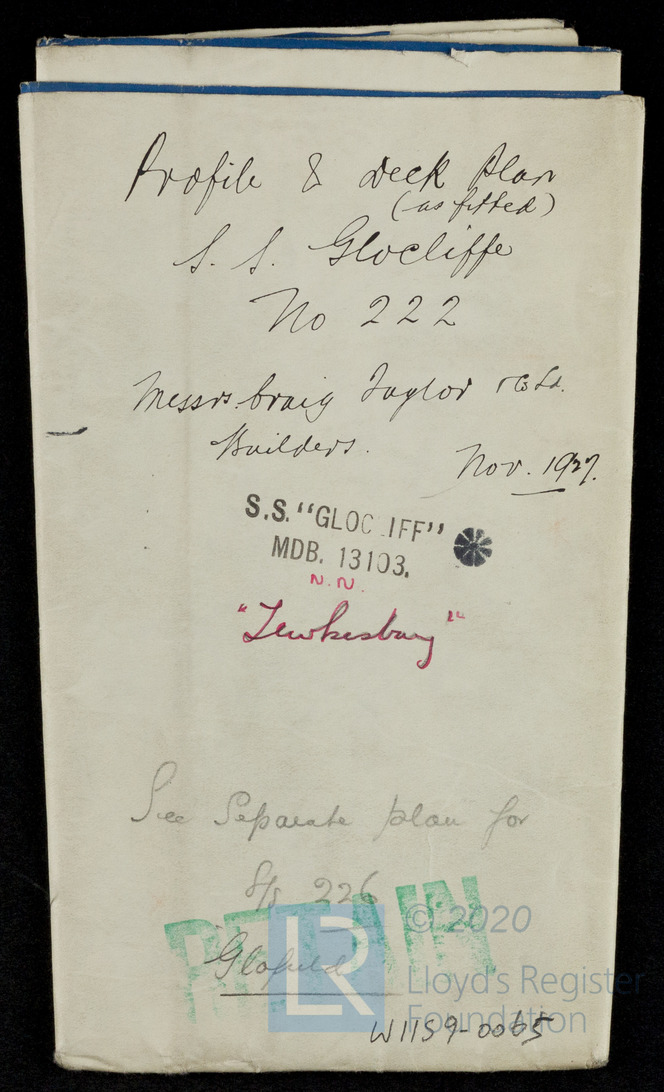 Profile & Deck Plan
(as fitted)
S. S. Glocliffe
No 222
Messrs. Craig Taylor & Co Ld.
Builders.
Nov. 1927.
S.S. "GLOC IFF"
MDB. 13103.
N.N.
"Tewkesbury"
See Separate plan for
S/S 226
Glofield
RETAIN
LR
© 2020
Lloyd's Register
Foundation
W1159-0065